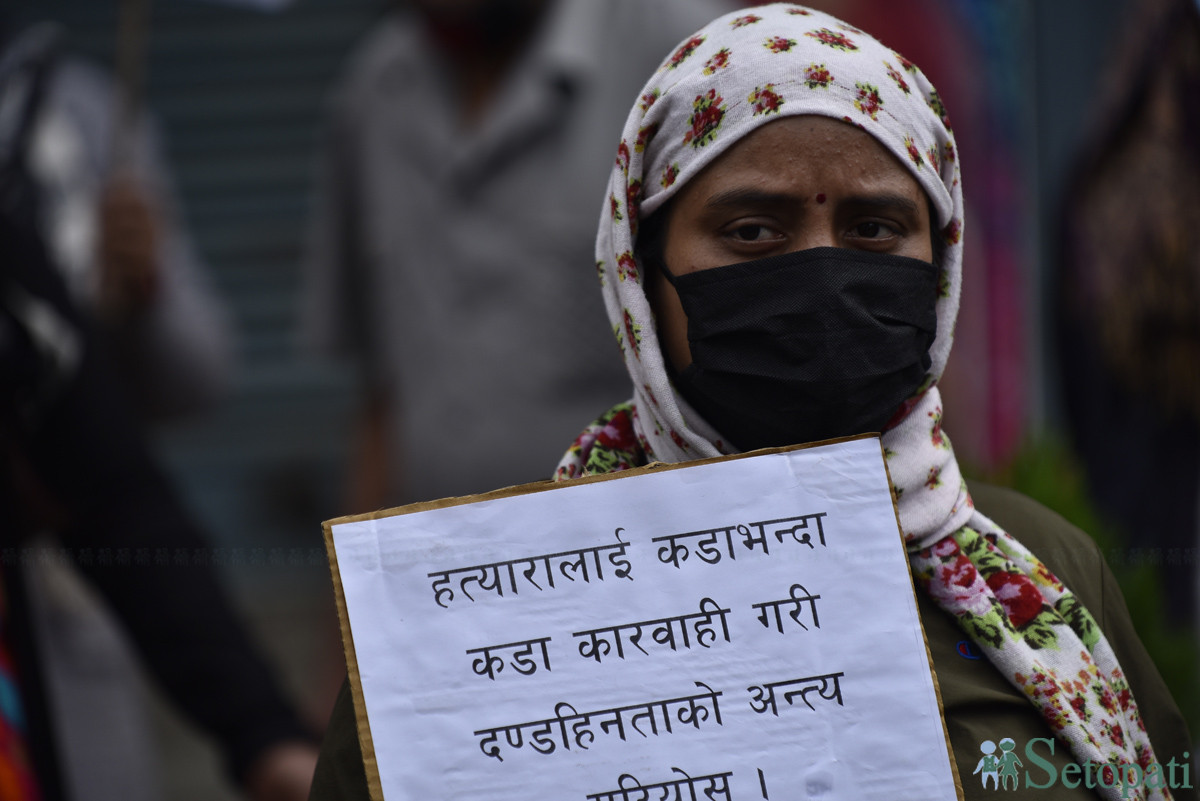 हत्यारालाई कडाभन्दा
कडा कारवाही गरी
दण्डहिनताको अन्त्य
गरियोस् ।
Setopati